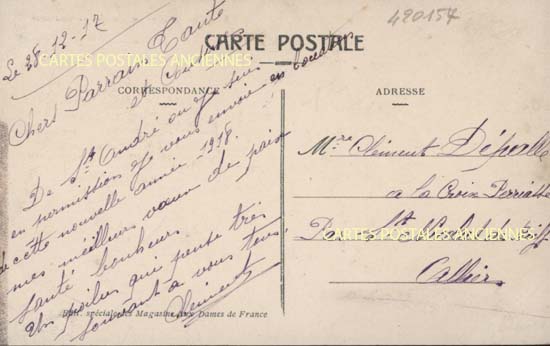 490157
Le 28-12-17
CARTES POSTALES ANCIENNES
CARTE POSTALE
CORRESPONDANCE
ADRESSE
Chers Parrain Tante
et
De St André ou je suis
en permission je vous envoie en
cette nouvelle année 1918
mes meilleurs vœux de paix
santé bonheur
Un poilus qui pense très
souvent a vous tous
Clément
Mr Clément
a la Croix
Par St
CARTES POSTALES ANCIENNES
Allier
Edit. spéciale des Magasins Aux Dames de France